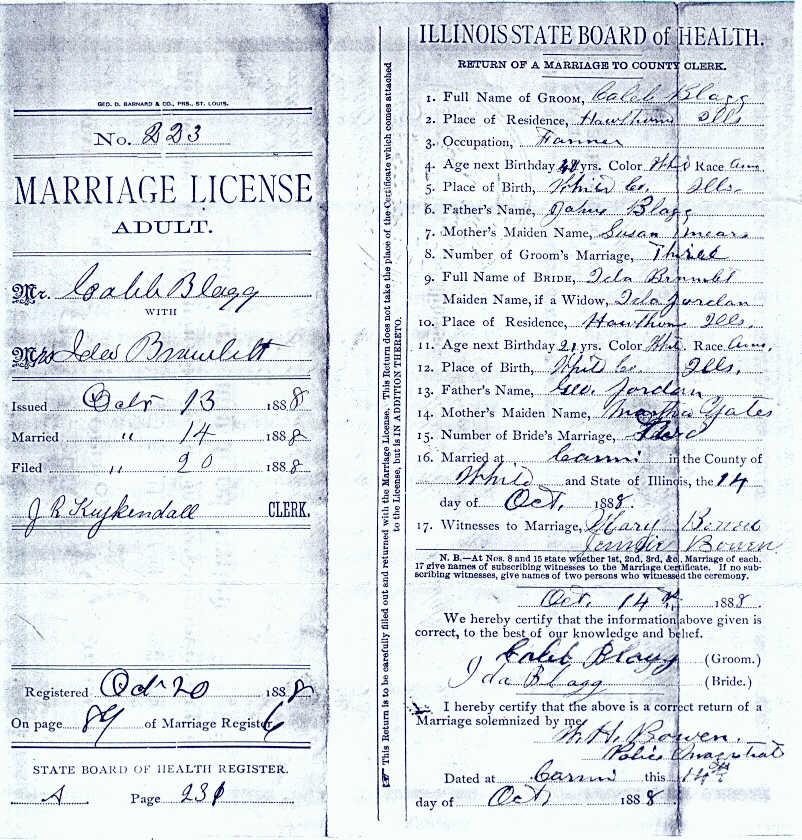 GEO. D. BARNARD & CO., PRS., ST. LOUIS.
No. 223
MARRIAGE LICENSE
ADULT.
Mr. Caleb Blagg
WITH
Mrs Ida Bramlett
Issued Octr 13 1888
Married " 14 1888
Filed " 20 1888
J R Kuykendall CLERK.
Registered Oct 20 1888
On page 89 of Marriage Register 6
STATE BOARD OF HEALTH REGISTER.
A Page 231
☞ This Return is to be carefully filled out and returned with the Marriage License. This Return does not take the place of the Certificate which comes attached
to the License, but is IN ADDITION THERETO.
ILLINOIS STATE BOARD of HEALTH.
RETURN OF A MARRIAGE TO COUNTY CLERK.
1. Full Name of GROOM, Caleb Blagg
2. Place of Residence, Hawthorn Ills
3. Occupation, Farmer
4. Age next Birthday yrs. Color Whit Race Am.
5. Place of Birth, Whit Co. Ills.
6. Father's Name, John Blagg
7. Mother's Maiden Name, Susan Mears
8. Number of Groom's Marriage, Third
9. Full Name of BRIDE, Ida Bramlet
Maiden Name, if a Widow, Ida Jordan
10. Place of Residence, Hawthorn Ills.
11. Age next Birthday 21 yrs. Color Whit. Race Am.
12. Place of Birth, Whit Co Ills.
13. Father's Name, Geo. Jordan
14. Mother's Maiden Name, Martha Yates
15. Number of Bride's Marriage,
16. Married at Carmi in the County of
Whit and State of Illinois, the 14
day of Oct. 1888.
17. Witnesses to Marriage, Mary Bowen
Jennie Bowen
N. B.—At Nos. 8 and 15 state whether 1st, 2nd, 3rd, &c, Marriage of each.
17 give names of subscribing witnesses to the Marriage Certificate. If no sub-
scribing witnesses, give names of two persons who witnessed the ceremony.
Oct. 14th 1888.
We hereby certify that the information above given is
correct, to the best of our knowledge and belief.
Caleb Blagg (Groom.)
Ida Blagg (Bride.)
I hereby certify that the above is a correct return of a
Marriage solemnized by me
W. H. Bowen.
Police Magistrat
Dated at Carmi this 14th
day of Oct 1888